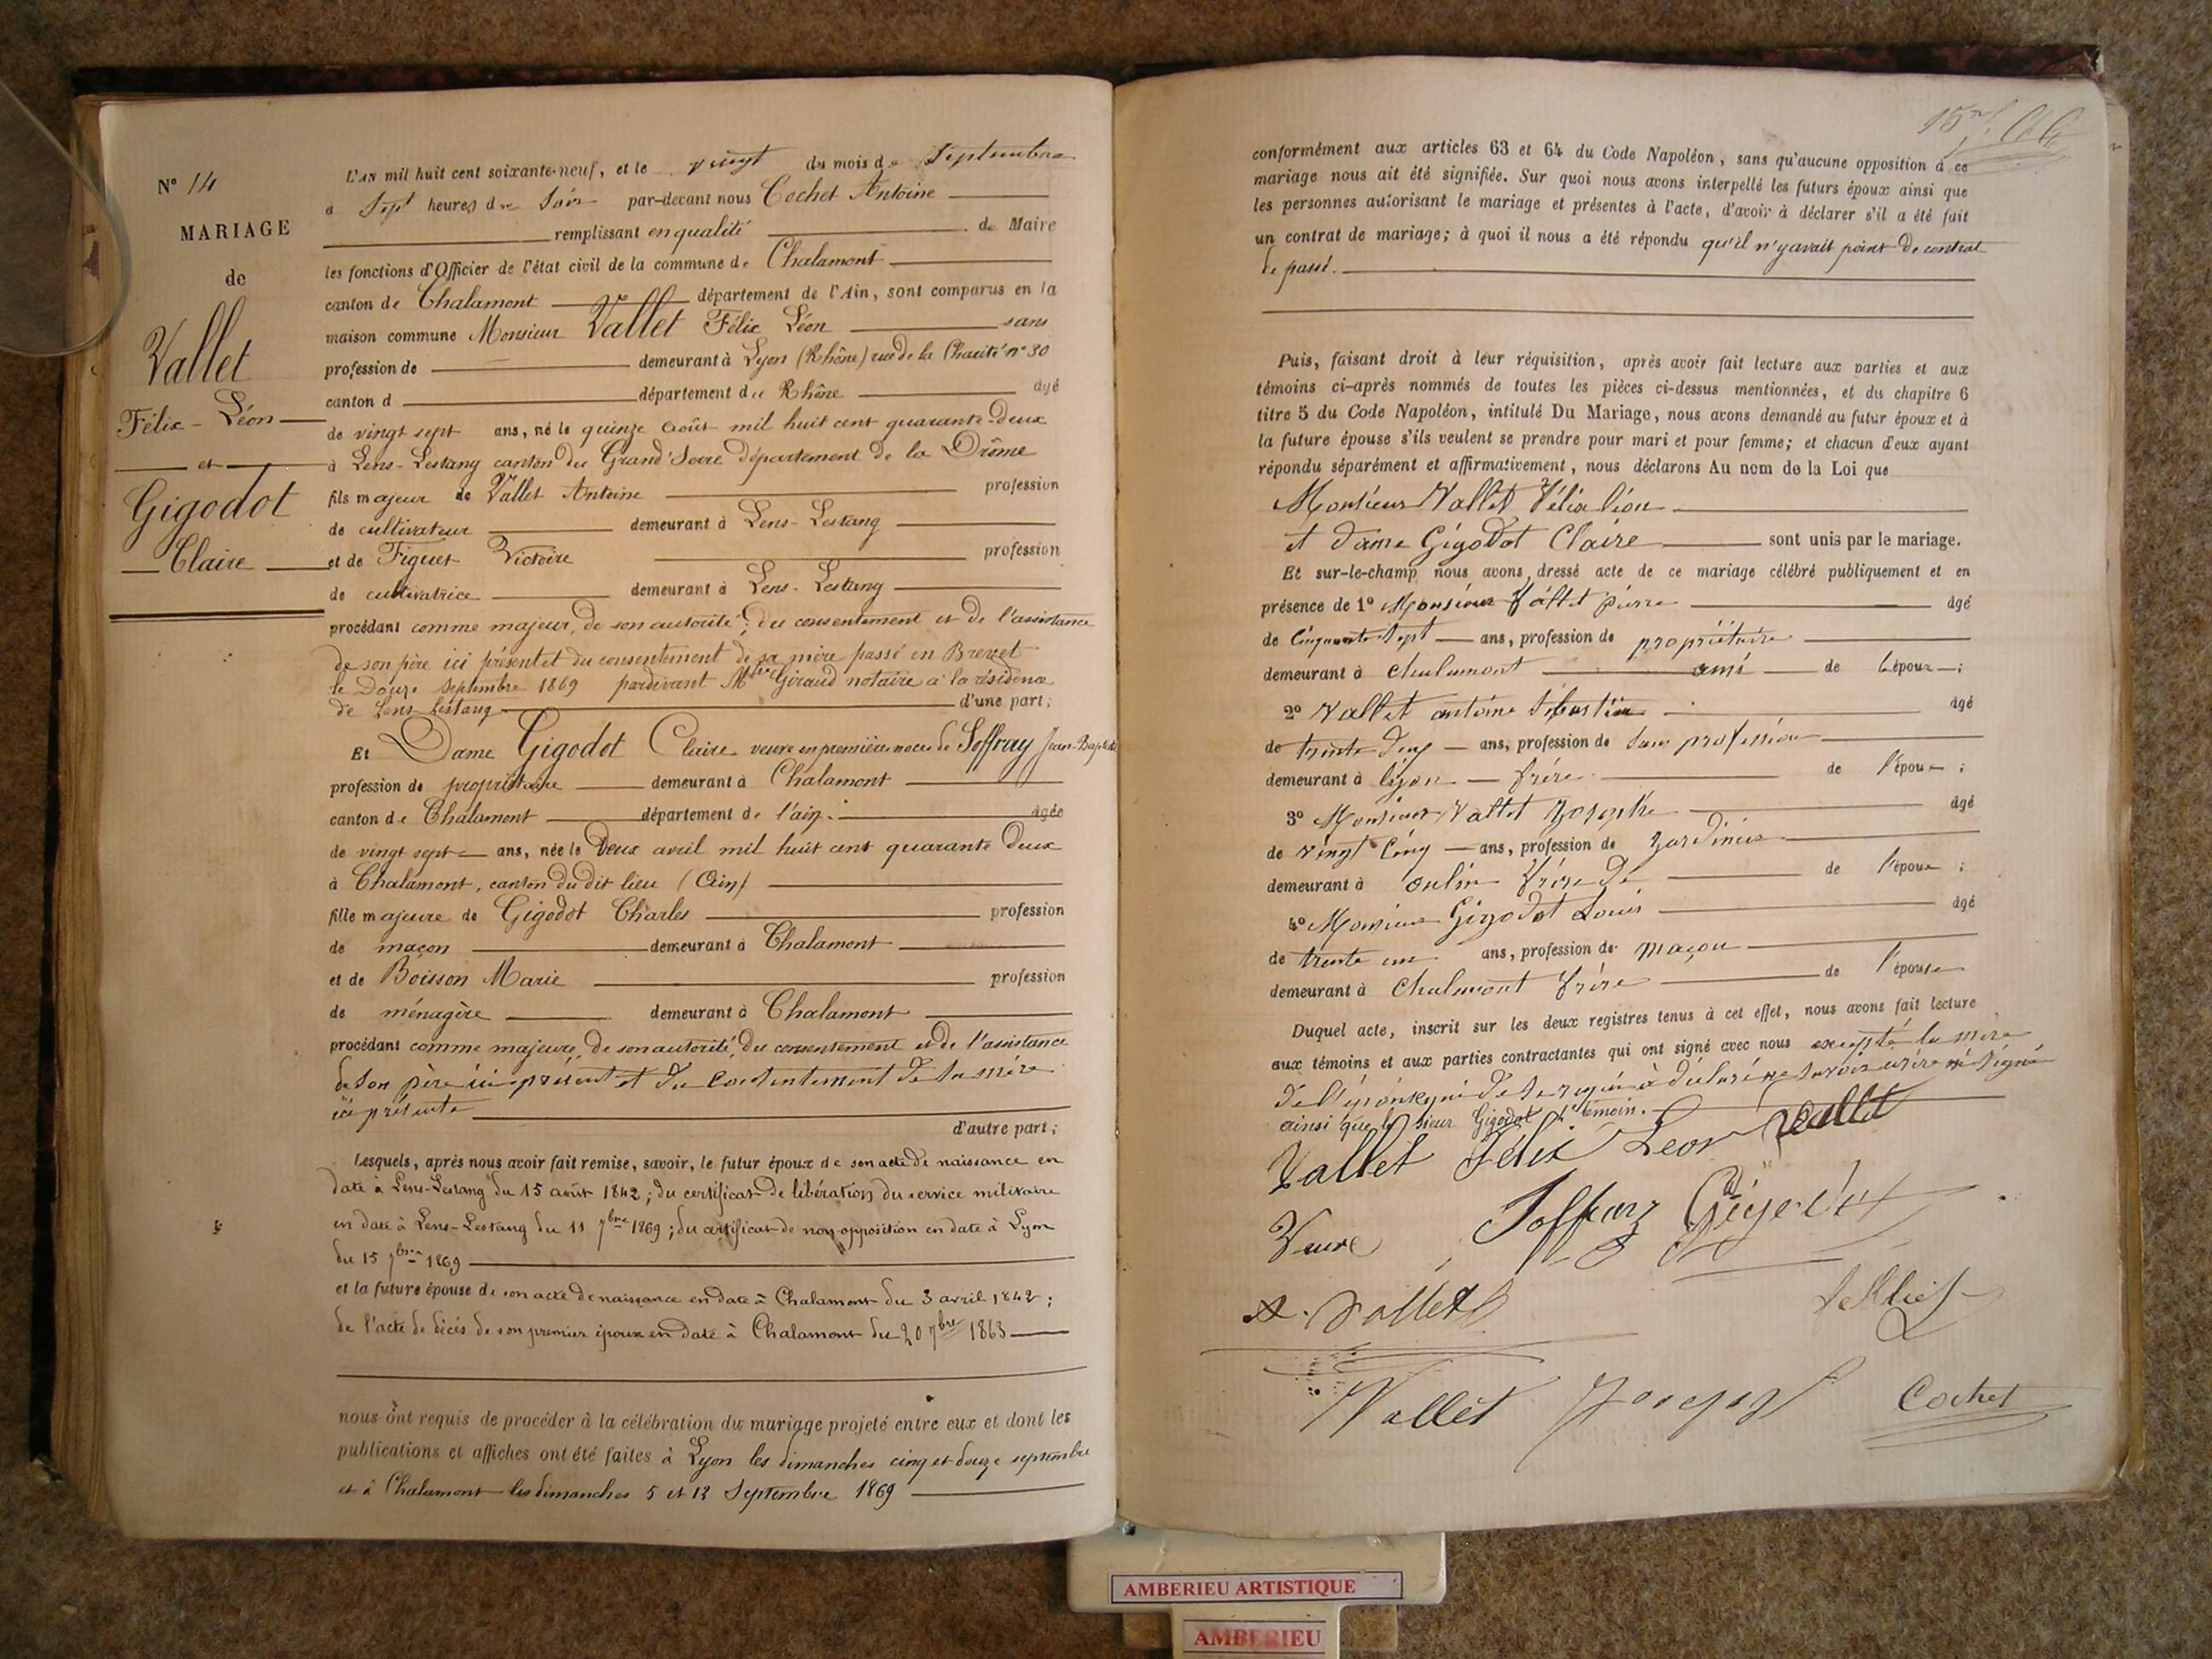 N° 14
MARIAGE
de
Vallet
Félix - Léon
et
Gigodot
Claire
L'AN mil huit cent soixante-neuf, et le vingt du mois de Septembre
à Sept heures du Soir par-devant nous Cochet Antoine
remplissant en qualité de Maire
les fonctions d'Officier de l'état civil de la commune de Chalamont
canton de Chalamont département de l'Ain, sont comparus en la
maison commune Monsieur Vallet Félix Léon sans
profession de demeurant à Lyon (Rhône) rue de la Charité n° 30
canton d département du Rhône âgé
de vingt sept ans, né le quinze Août mil huit cent quarante-deux
à Lens-Lestang canton du Grand'Serre département de la Drôme
fils majeur de Vallet Antoine profession
de cultivateur demeurant à Lens-Lestang
et de Figuet Victoire profession
de cultivatrice demeurant à Lens-Lestang
procédant comme majeur, de son autorité, du consentement et de l'assistance
de son père ici présent et du consentement de sa mère passé en Brevet
le Douze Septembre 1869 pardevant Giraud notaire à la résidence
de Lens Lestang d'une part;
Et Dame Gigodot Claire veuve en première noces de Joffray Jean-Baptiste
profession de propriétaire demeurant à Chalamont
canton de Chalamont département de l'ain. âgée
de vingt sept ans, née le Deux avril mil huit cent quarante deux
à Chalamont, canton du dit lieu (Ain)
fille majeure de Gigodot Charles profession
de maçon demeurant à Chalamont
et de Boisson Marie profession
de ménagère demeurant à Chalamont
procédant comme majeure, de son autorité, du consentement et de l'assistance
de son père ici présent et du consentement de sa mère
ici présente
d'autre part;
Lesquels, après nous avoir fait remise, savoir, le futur époux de son acte de naissance en
date à Lens-Lestang du 15 août 1842; du certificat de libération du service militaire
en date à Lens-Lestang du 11 7bre 1869; du certificat de non opposition en date à Lyon
du 15 7bre 1869
et la future épouse de son acte de naissance en date à Chalamont du 3 avril 1842;
de l'acte de décés de son premier époux en date à Chalamont du 20 7bre 1863
nous ont requis de procéder à la célébration du mariage projeté entre eux et dont les
publications et affiches ont été faites à Lyon les dimanches cinq et douze septembre
et à Chalamont les dimanches 5 et 12 Septembre 1869
conformément aux articles 63 et 64 du Code Napoléon, sans qu'aucune opposition à ce
mariage nous ait été signifiée. Sur quoi nous avons interpellé les futurs époux ainsi que
les personnes autorisant le mariage et présentes à l'acte, d'avoir à déclarer s'il a été fait
un contrat de mariage; à quoi il nous a été répondu qu'il n'y avait point de contrat
de passé.
Puis, faisant droit à leur réquisition, après avoir fait lecture aux parties et aux
témoins ci-après nommés de toutes les pièces ci-dessus mentionnées, et du chapitre 6
titre 5 du Code Napoléon, intitulé Du Mariage, nous avons demandé au futur époux et à
la future épouse s'ils veulent se prendre pour mari et pour femme; et chacun d'eux ayant
répondu séparément et affirmativement, nous déclarons Au nom de la Loi que
Monsieur Vallet Félix léon
et dame Gigodot Claire sont unis par le mariage.
Et sur-le-champ nous avons dressé acte de ce mariage célébré publiquement et en
présence de 1° Monsieur pierre âgé
de Cinquante Sept ans, profession de propriétaire
demeurant à Chalamont ami de l'époux;
2° Vallet antoine Sébastien âgé
de trente Deux ans, profession de Sans profession
demeurant à lÿon frère de l'époux;
3° Monsieur Vallet Joseph âgé
de vingt Cinq ans, profession de Jardinier
demeurant à oulin frère de de l'époux;
4° Monsieur Gigodot Louis âgé
de trente un ans, profession de maçon
demeurant à Chalamont frère de l'épouse
Duquel acte, inscrit sur les deux registres tenus à cet effet, nous avons fait lecture
aux témoins et aux parties contractantes qui ont signé avec nous excepté la mère
de l'épouse qui de ce requis à déclaré ne savoir écrire ni signé
ainsi que le sieur Gigodot 4e témoin.
Vallet Félix Leon Vallet
Veuve Joffray Gigodot
A. Vallet
Vallet Joseph Cochet
AMBERIEU ARTISTIQUE
AMBERIEU